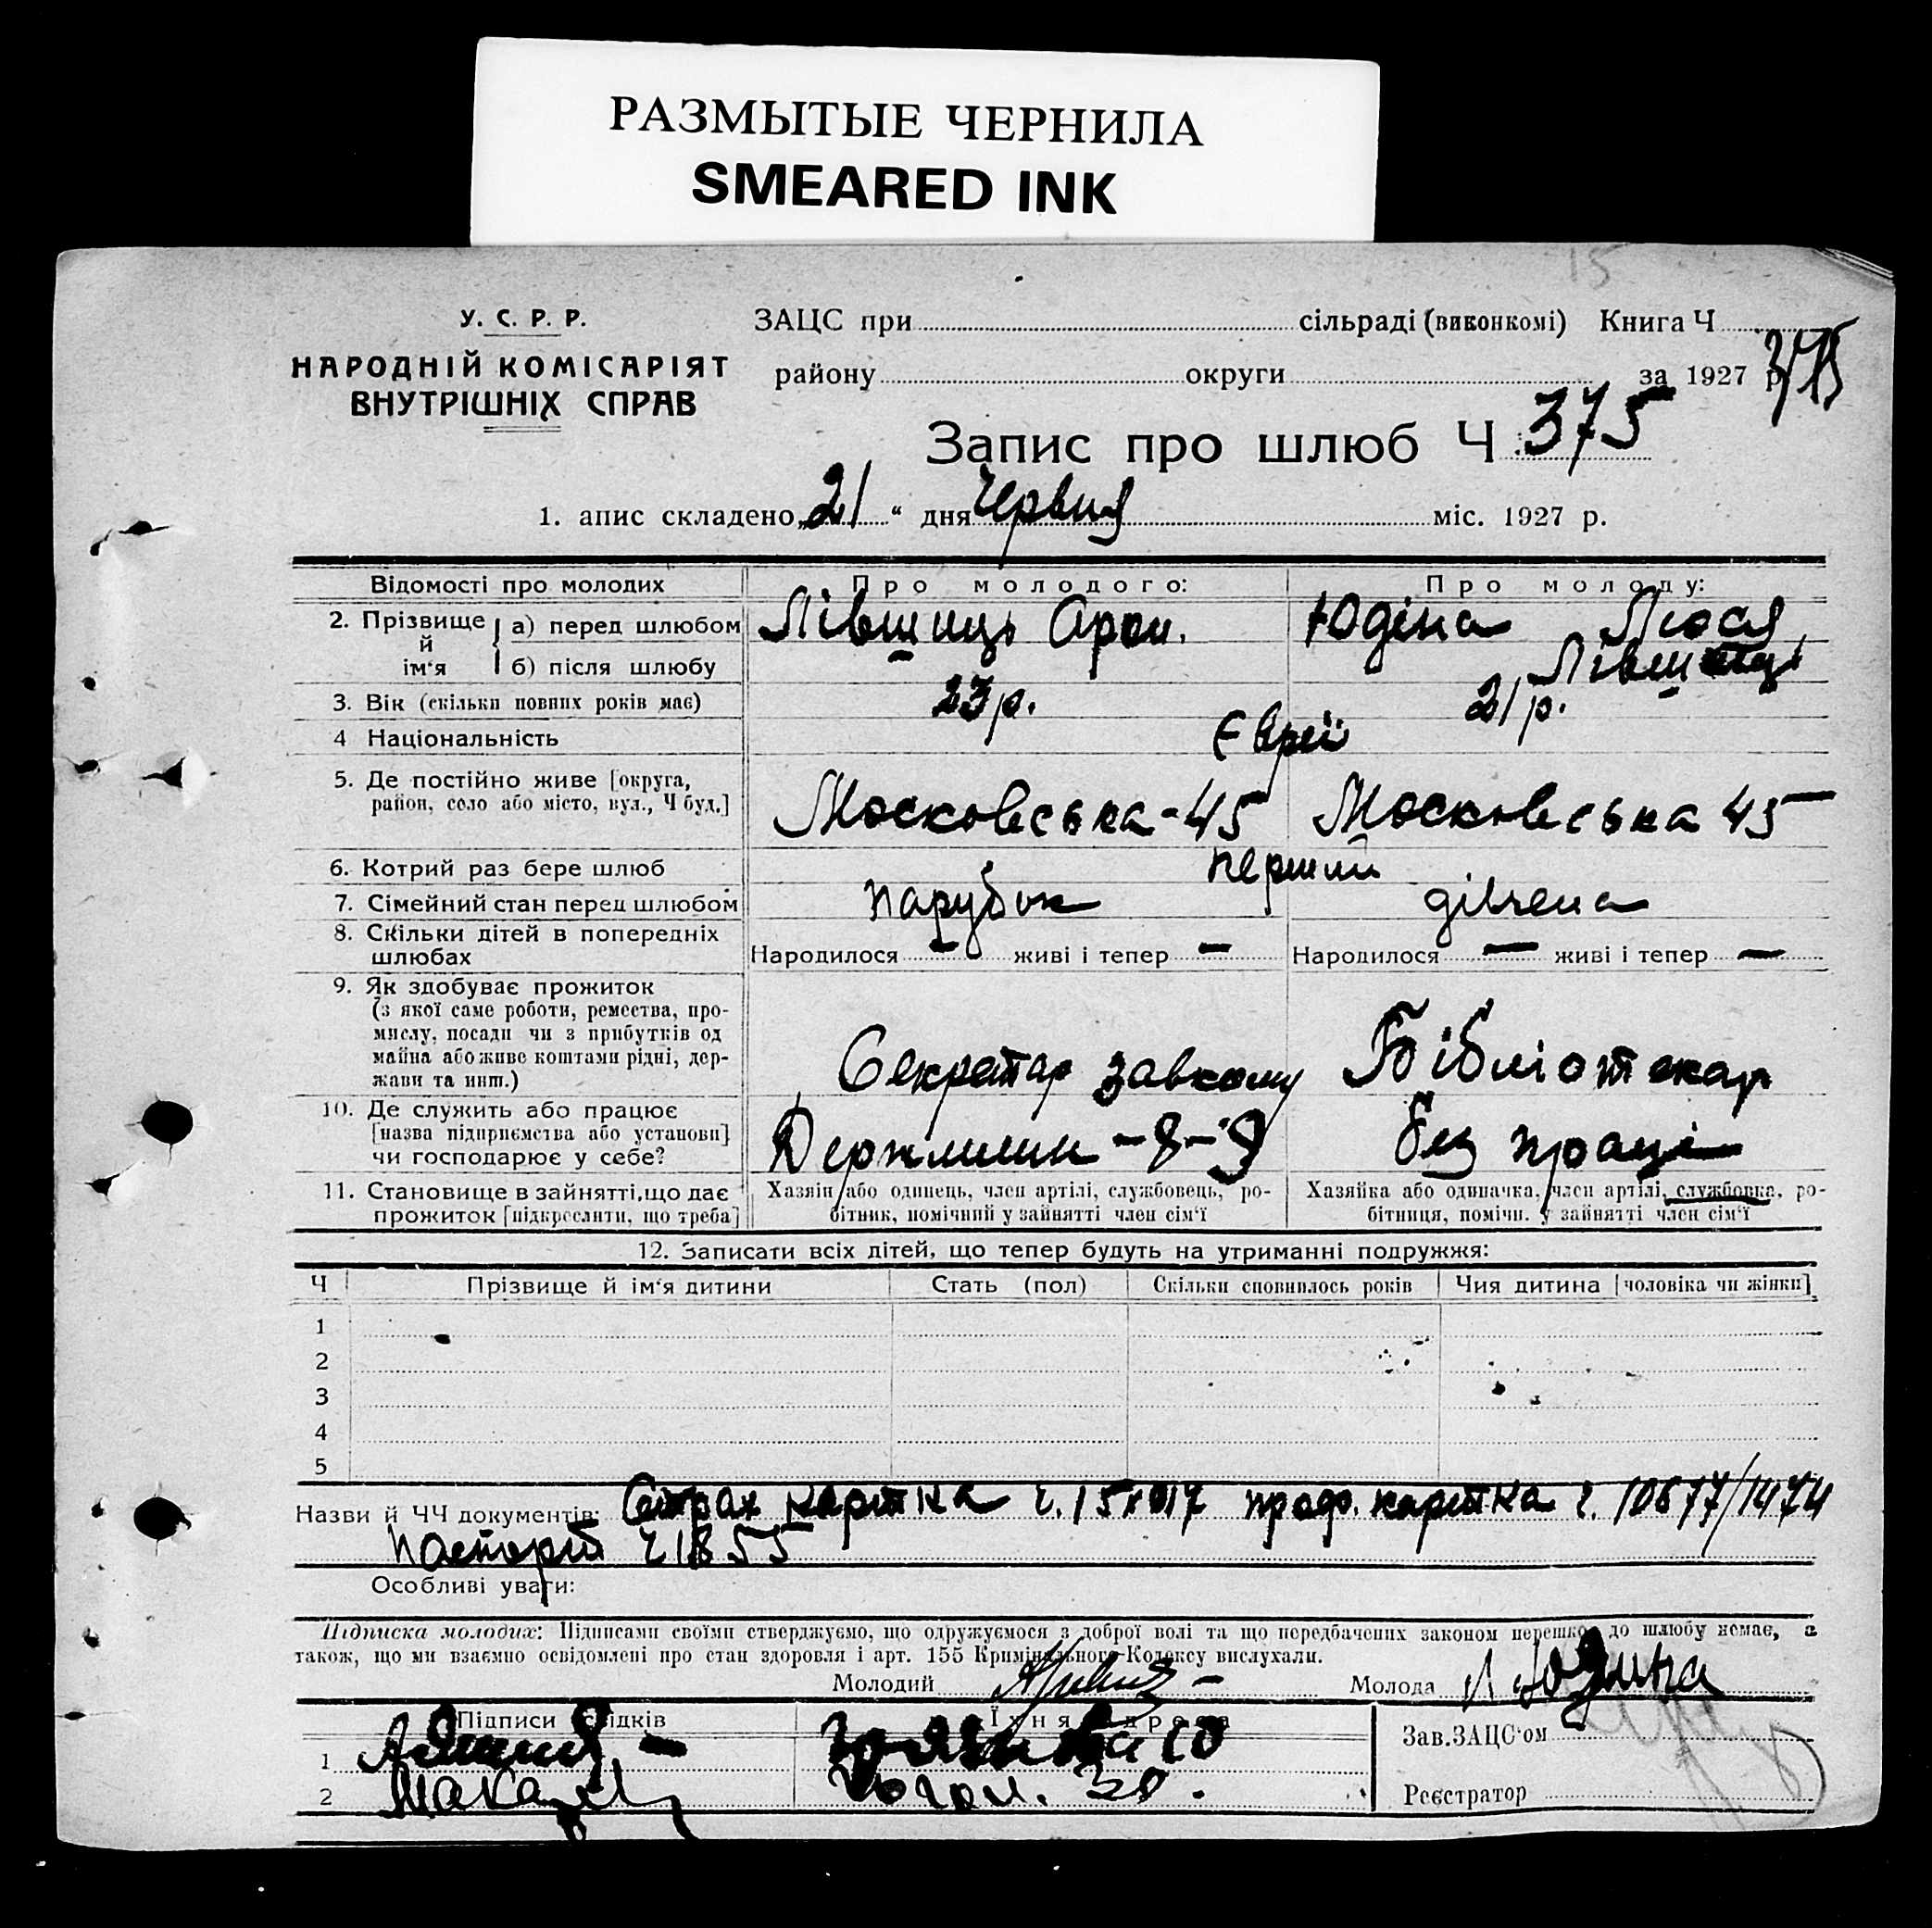 РАЗМЫТЫЕ ЧЕРНИЛА
SMEARED INK
15
У. С. Р. Р.
НАРОДНІЙ КОМІСАРІЯТ
ВНУТРІШНІХ СПРАВ
ЗАЦС при сільраді (виконкомі) Книга Ч
району округи за 1927 р. 375
Запис про шлюб Ч. 375
1. апис складено „21“ дня Червня міс. 1927 р.
Відомості про молодих Про молодого: Про молоду:
2. Прізвище й ім‘я а) перед шлюбом Лівшиць Арон. Юдіна Люся
б) після шлюбу Лівшиць
3. Вік (скільки повних років має) 23 р. 21 р.
4 Національність Євреї
5. Де постійно живе [округа,
район, село або місто, вул., Ч буд.] Московська-45 Московська 45
6. Котрий раз бере шлюб перший
7. Сімейний стан перед шлюбом парубок дівчена
8. Скільки дітей в попередніх
шлюбах Народилося — живі і тепер — Народилося — живі і тепер —
9. Як здобуває прожиток
(з якої саме роботи, ремества, про-
мислу, посади чи з прибутків од
майна або живе коштами рідні, дер-
жави та инш.) Секретар завкому Бібліотекар
10. Де служить або працює
[назва підприємства або установи]
чи господарює у себе? без праці
11. Становище в зайнятті, що дає
прожиток [підкреслити, що треба]
Хазяін або одинець, член артілі, службовець, ро-
бітник, помічний у зайнятті член сім‘ї
Хазяйка або одиначка, член артілі, службовка, ро-
бітниця, помічн. у зайнятті член сім‘ї
12. Записати всіх дітей, що тепер будуть на утриманні подружжя:
Ч Прізвище й ім‘я дитини Стать (пол) Скільки сповнилось років Чия дитина [чоловіка чи жінки]
1
2
3
4
5
Назви й ЧЧ документів: Страх картка ч. проф. картка ч. 10677/1474
ч 1855
Особливі уваги:
Підписка молодих: Підписами своїми стверджуємо, що одружуємося з доброї волі та що передбачених законом перешкод до шлюбу немає, а
також, що ми взаємно освідомлені про стан здоровля і арт. 155 Кримінального Кодексу вислухали.
Молодий Молода Л Юдина
Підписи свідків Їхня адреса
1
2 30.
Зав.ЗАЦС‘ом
Реєстратор